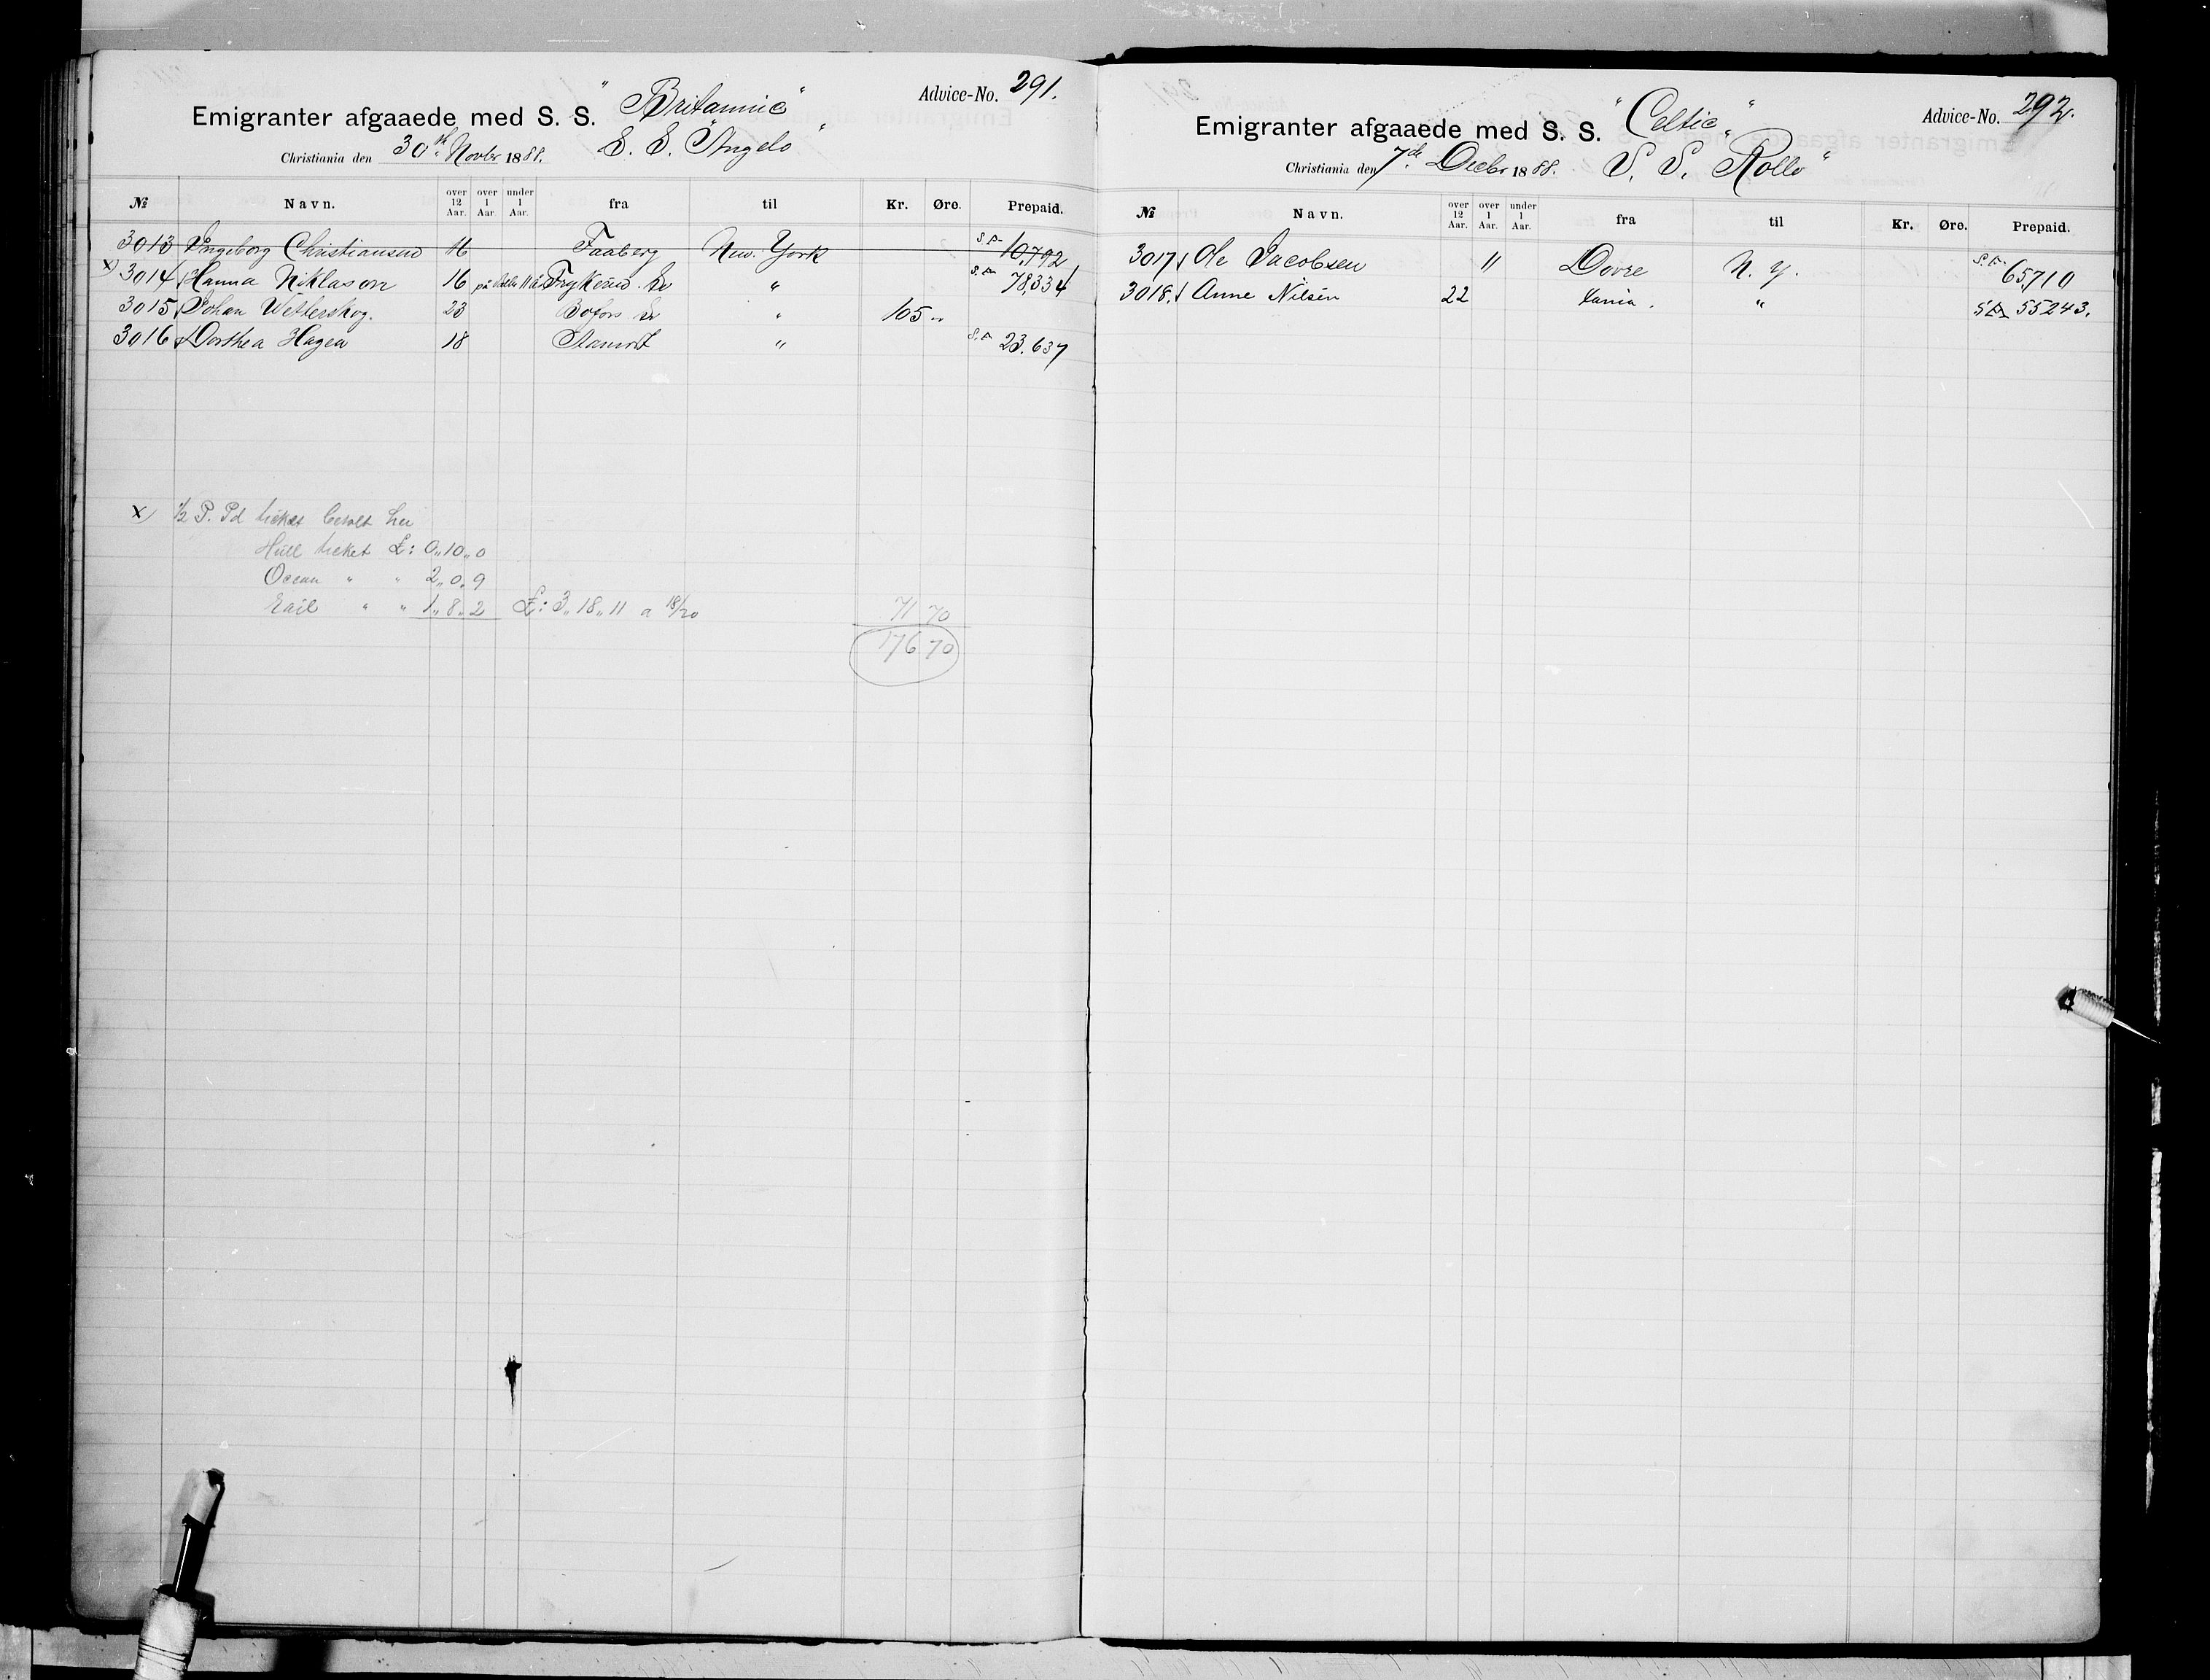 Advice-No. 291.
Emigranter afgaaede med S. S. "Britannic"
Christiania den 30th Novbr 1888. S. S. "Angelo"
№ Navn. over 12 Aar. over 1 Aar. under 1 Aar. fra til Kr. Øre. Prepaid.
3013 Ingeborg Christiansen 16 Faaberg New. York 10,792
x) 3014 Hanna Niklason 16 Frykerud. Sv " 78,334
3015 Johan Wetterskog. 23 Bofors Sv " 105 "
3016 Dorthea Hagen 18 " 23.637
x) ½ P. Pd ticket betalt her
Hull ticket £: 0,,10,,0
Ocean " " 2,,0,,9
Rail " " 1,,8,,2 £: 3,,18,,11 a 18/20 71 70
176 70
Advice-No. 292.
Emigranter afgaaede med S. S. "Celtic"
Christiania den 7de Decbr 1888. S. S. Rollo"
№ Navn. over 12 Aar. over 1 Aar. under 1 Aar. fra til Kr. Øre. Prepaid.
3017 Ole Jacobsen 11 Dovre N. Y. 65,710
3018. Anne Nilsen 22 Xania. " 55243.